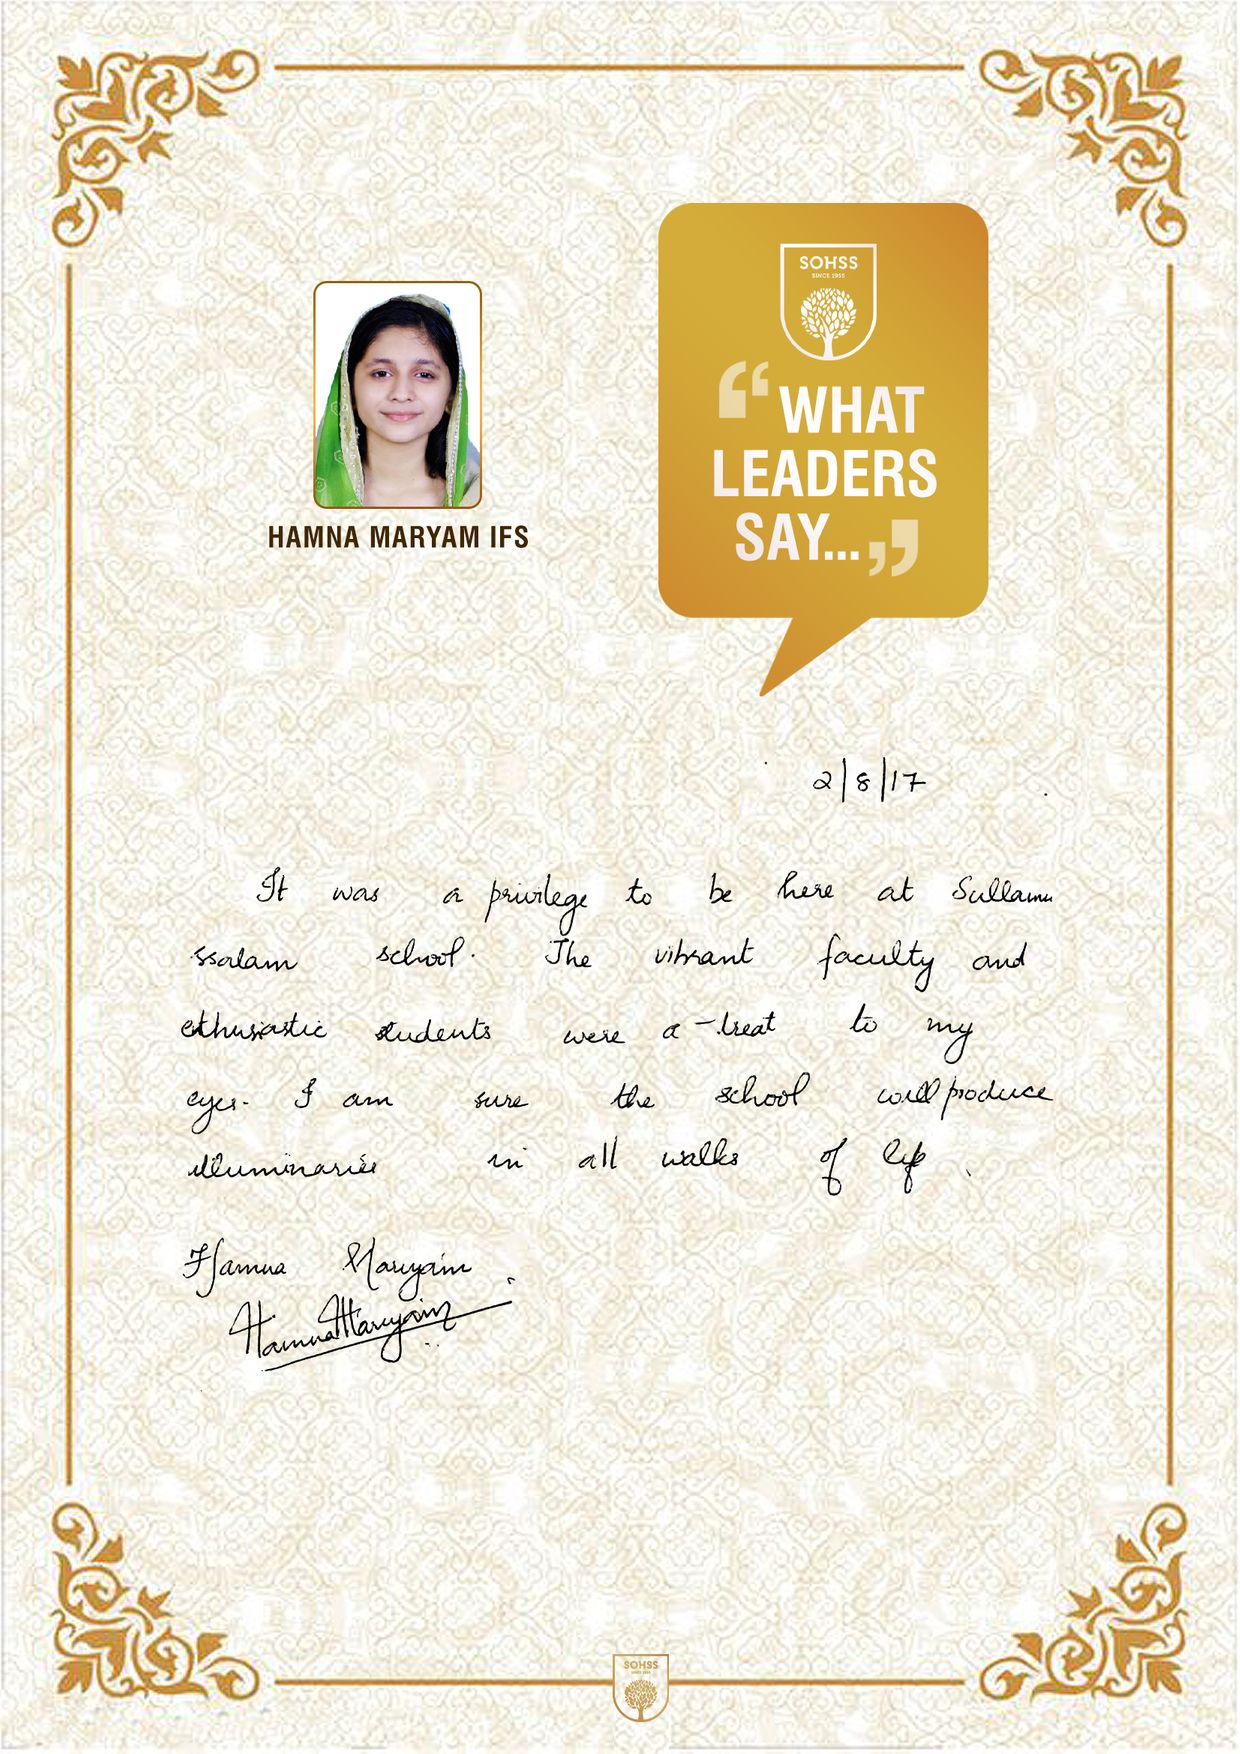 SOHSS
SINCE 1955
“WHAT
LEADERS
SAY...”
HAMNA MARYAM IFS
2/8/17
It was a privilege to be here at Sullamu
ssalam school. The vibrant faculty and
ethusiastic students were a treat to my
eyes. I am sure the school will produce
illuminaries in all walks of life.
Hamna Maryam
Hamna Maryam
SOHSS
SINCE 1955